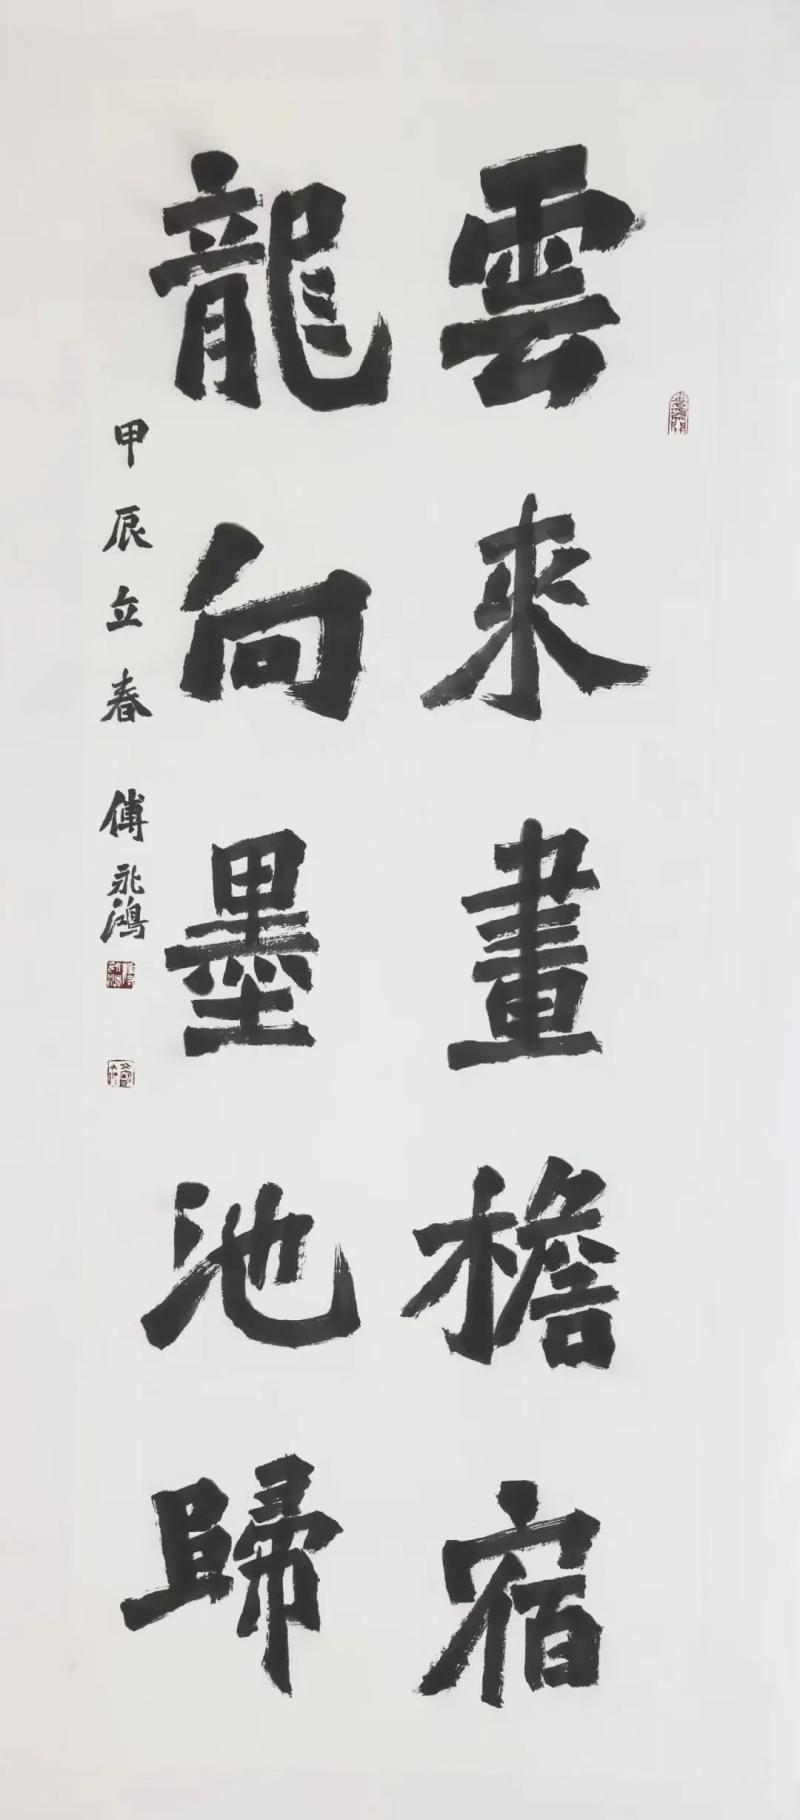 雲來畫檐宿
龍向墨池歸
甲辰立春 傅永鴻